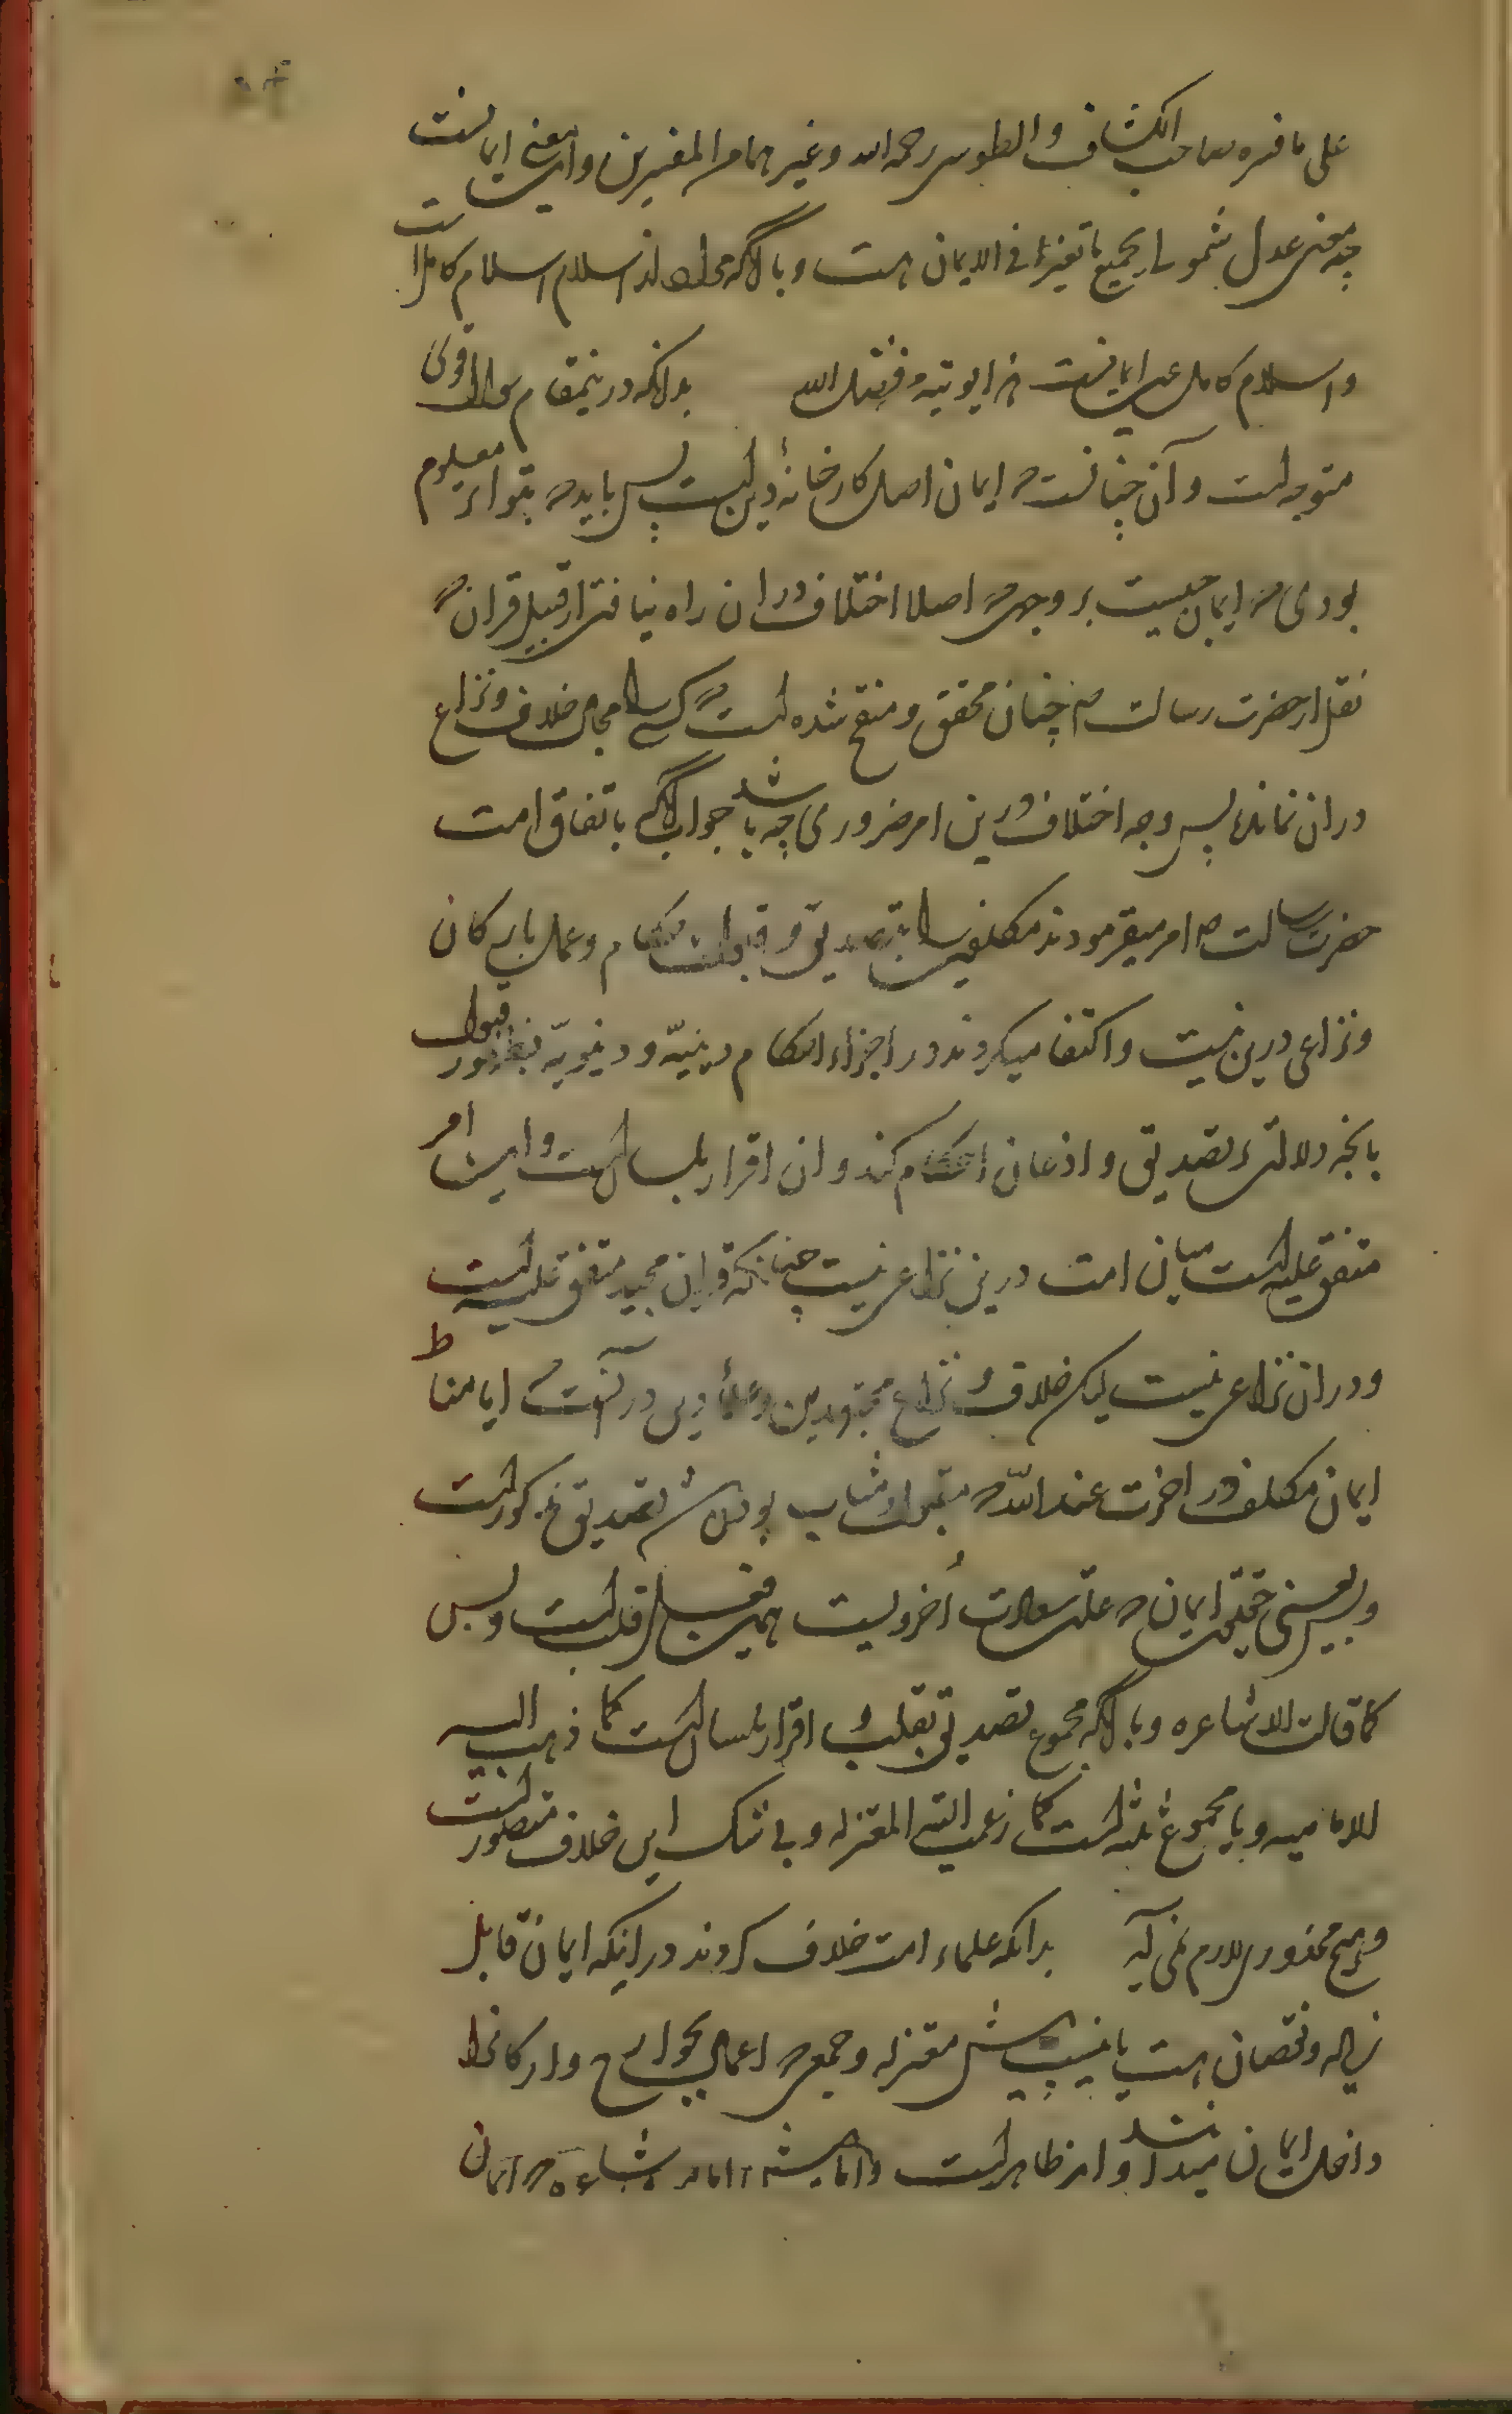 علی ما فسره صاحب الکشاف و الطوسی رحمه الله و غیرهما من المفسرین و این معنی ایمانست
چه معنی عدل شمولی بجمیع ما تعیزله فی الایمان هست و یا آنکه مراد از اسلام اسلام کامل است
و اسلام کامل عین ایمانست بدانکه درینمقام سوال قوی
متوجه است و آن چنانست که ایمان اصل کارخانهٔ دین است پس باید که بتواتر معلوم
بودی که ایمان چیست بر وجهی که اصلا اختلاف در ان راه نیافتی از قبیل قران که
نقل از حضرت رسالت ص چنان محقق و منقح شده است که کسی را مجال خلاف و نزاع
در ان نمانده پس وجه اختلاف درین امر ضروری چه باشد جواب آنکه باتفاق امت
حضرت رسالت ص امر میفرمودند مکلفین را بتصدیق و قبول احکام و عمل بارکان
و نزاعی درین نیست و اکتفا میکردند در اجراء احکام دینیّه و دنیویّه بظهور قبول
بانچه دلالت بر تصدیق و اذعان احکام کند و ان اقرار بلسان است و این امر
متفق علیه است میان امت درین نزاعی نیست چنانکه قران مجید متفق علیه است
و در ان نزاعی نیست لیکن خلاف و نزاع مجتهدین و علماء دین در آنست که ایا مناط
ایمان مکلف در اخرت عند الله که مقبول و مثاب بودنش تصدیق مذکور است
و بس یعنی حقیقت ایمان که علت سعادت اُخرویست همین فعل قلب است و بس
کما قالت الاشاعره و یا آنکه مجموع تصدیق بقلب و اقرار بلسان است کما ذهب الیه
الامامیه و یا مجموع ثلثه است کما زعمت الیه المعتزله و بی شک این خلاف متصور است
و هیچ محذوری لازم نمی آید بدانکه علماء امت خلاف کردند در اینکه ایمان قابل
زیاده و نقصان هست یا نیست پیش معتزله و جمعی که اعمال جوارح و ارکان را
داخل ایمان میدانند و امر ظاهر است و اما پیش امامیه و اشاعره که ایمان